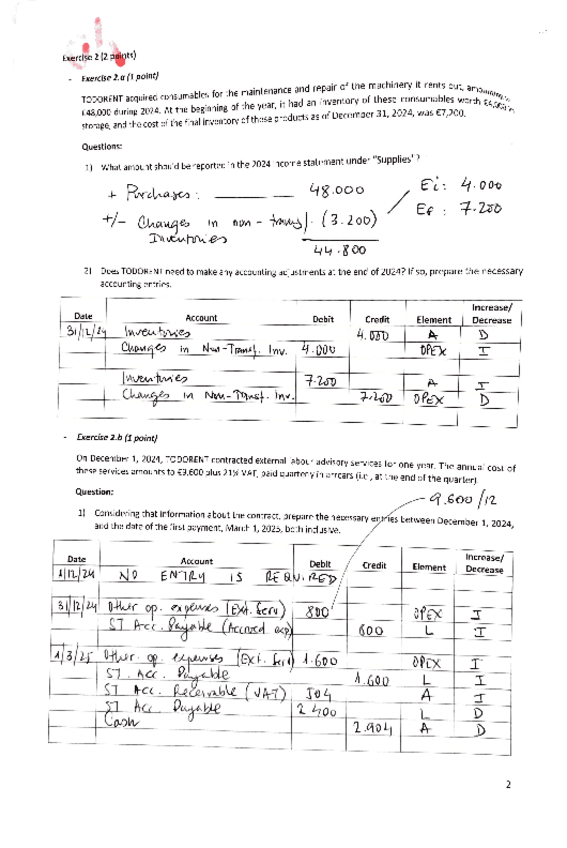 Exercise 2 (2 points)
- Exercise 2.a (1 point)
TODORENT acquired consumables for the maintenance and repair of the machinery it rents out, amounting
€48,000 during 2024. At the beginning of the year, it had an inventory of these consumables worth €4,000
storage, and the cost of the final inventory of these products as of December 31, 2024, was €7,200.
Questions:
1) What amount should be reported in the 2024 income statement under "Supplies"?
+ Purchases: 48.000
+/- Changes in non-transf. (3.200)
Inventories
44.800
Ei: 4.000
Ef: 7.200
2) Does TODORENT need to make any accounting adjustments at the end of 2024? If so, prepare the necessary
accounting entries.
Date Account Debit Credit Element Increase/
Decrease
31/12/24 Inventories 4.000 A D
Changes in Non-Transf. Inv. 4.000 OPEX I
Inventories 7.200 A I
Changes in Non-Transf. Inv. 7.200 OPEX D
- Exercise 2.b (1 point)
On December 1, 2024, TODORENT contracted external labour advisory services for one year. The annual cost of
these services amounts to €9,600 plus 21% VAT, paid quarterly in arrears (i.e., at the end of the quarter).
Question:
9.600/12
1) Considering that information about the contract, prepare the necessary entries between December 1, 2024,
and the date of the first payment, March 1, 2025, both inclusive.
Date Account Debit Credit Element Increase/
Decrease
1/12/24 NO ENTRY IS REQUIRED
31/12/24 Other op. expenses (Ext. Serv) 800 OPEX I
ST Acc. Payable (Accrued exp) 800 L I
1/3/25 Other op expenses (Ext. Serv) 1.600 OPEX I
ST. Acc. Payable 1.600 L I
ST Acc. Receivable (VAT) 504 A I
ST Acc Payable 2 400 L D
Cash 2.904 A D
2